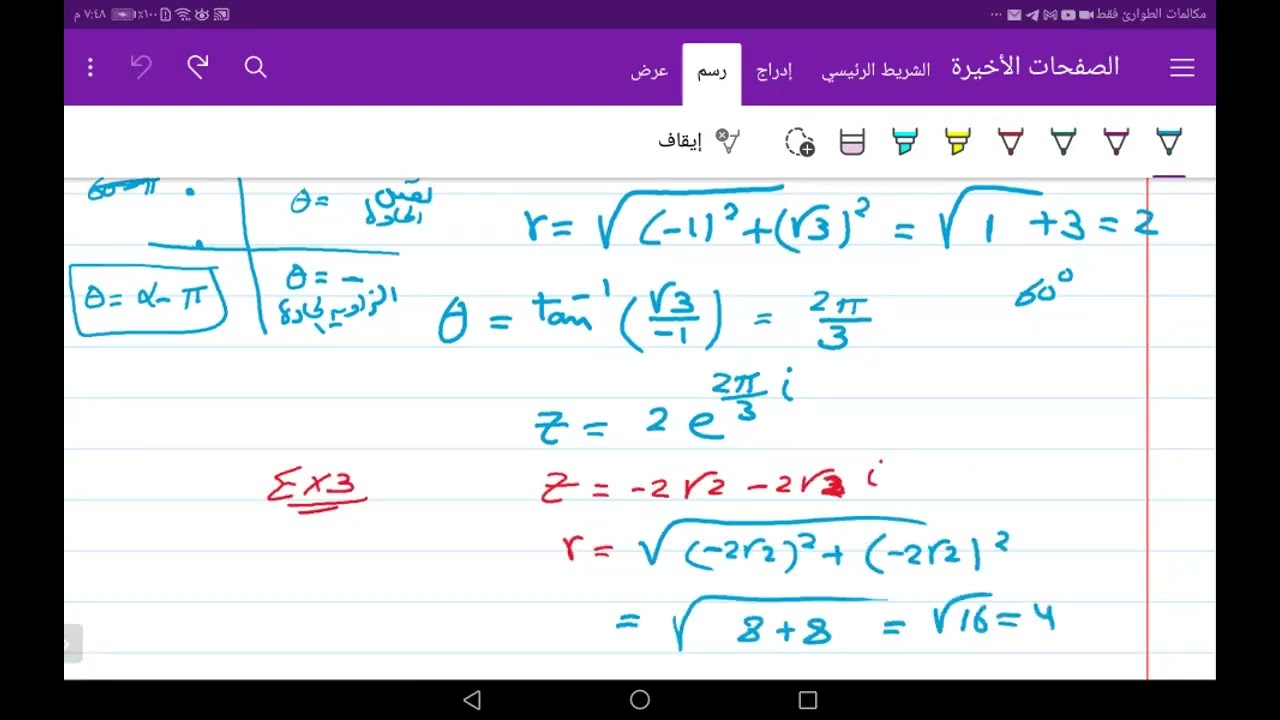 مكالمات الطوارئ فقط ... ١٠٠٪ ٧:٤٨ م
الصفحات الأخيرة الشريط الرئيسي إدراج رسم عرض
إيقاف
θ =
θ = -
θ = α - π
r = √((-1)² + (√3)²) = √(1 + 3) = 2
60°
θ = tan⁻¹(√3/-1) = 2π/3
z = 2 e^(2π/3 i)
Ex3
z = -2√2 - 2√2 i
r = √((-2√2)² + (-2√2)²)
= √(8 + 8) = √16 = 4